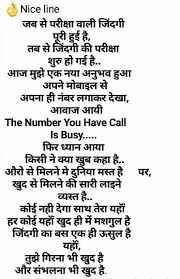 👌Nice line
जब से परीक्षा वाली जिंदगी
पूरी हुई है,
तब से जिंदगी की परीक्षा
शुरु हो गई है..
आज मुझे एक नया अनुभव हुआ
अपने मोबाइल से
अपना ही नंबर लगाकर देखा,
आवाज आयी
The Number You Have Call
Is Busy.....
फिर ध्यान आया
किसी ने क्या खुब कहा है..
औरो से मिलने मे दुनिया मस्त है पर,
खुद से मिलने की सारी लाइने
व्यस्त है..
कोई नही देगा साथ तेरा यहॉं
हर कोई यहॉं खुद ही में मशगुल है
जिंदगी का बस एक ही ऊसुल है
यहॉं,
तुझे गिरना भी खुद है
और संभलना भी खुद है.